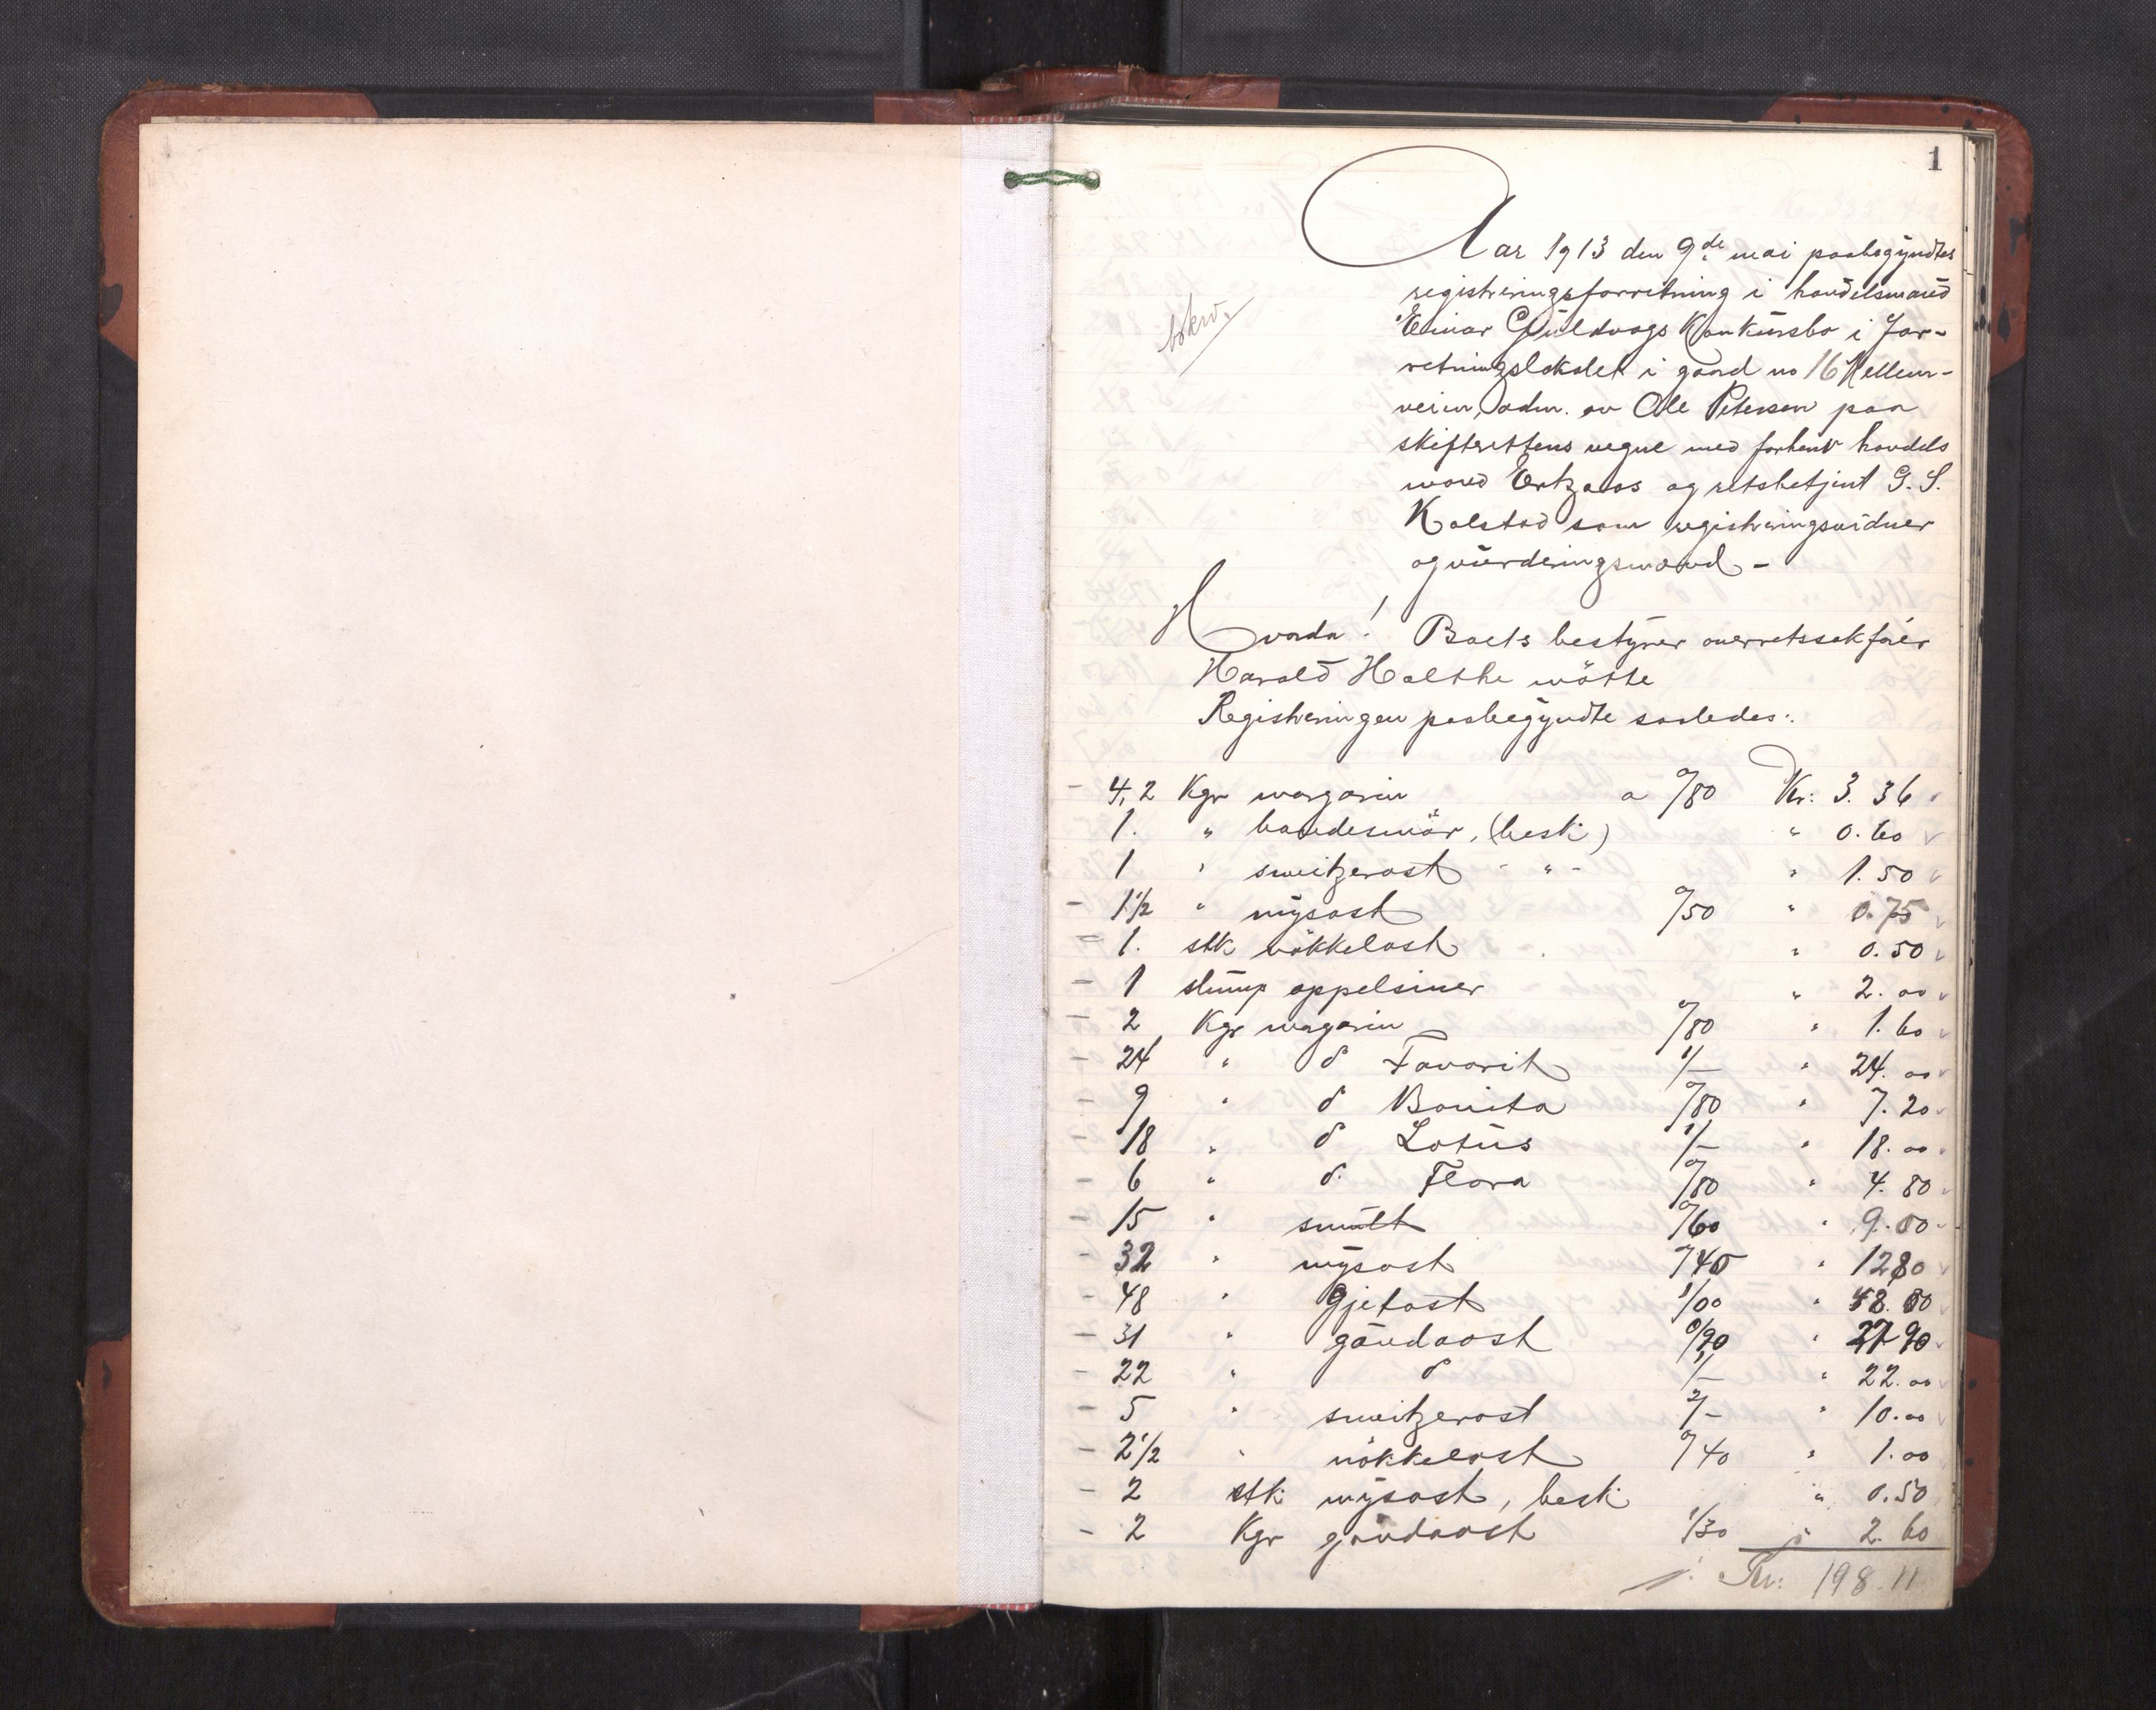 1
Aar 1913 den 9de mai paabegyndtes
registreringsforretning i handelsmand
Einar Guldvogs Konkursbo i For-
retningslokalet i gaard no 16 Kellem-
veien, adm. av Ole Petersen paa
skifterettens vegne med forhenv handels
mand Ertzaas og retsbetjent G. S.
Kolstad som registreringsvidner
og vurderingsmænd -
bokw.
Hvorda! Boets bestyrer overretssakfører
Harald Holthe mötte
Registreringen paabegyndte saaledes:
- 4,2 Kgr margarin a 0/80 Kr: 3. 36
1. " bondesmör, (besk) " 0. 60
1 " sweitzerost - " - " 1. 50
- 1 1/2 " mysost 0/50 " 0. 75
- 1. stk nökkelost " 0. 50
- 1 slump appelsiner " 2. 00
- 2 Kgr margarin 0/80 " 1. 60
- 24 " do Favorit 1/- " 24. 00
- 9 " do Bonita 0/80 " 7. 20
- 18 " do Lotus 1/- " 18. 00
- 6 " do Flora 0/80 " 4. 80
- 15 " smult 0/60 " 9. 00
- 32 " mysost 0/40 " 12 80
- 48 " Gjetost 1/00 " 48. 00
- 31 " goudaost 0/90 " 27 90
- 22 " do 1/- " 22. 00
- 5 " sweitzerost 2/- " 10. 00
- 2 1/2 " nökkelost 0/40 " 1. 00
- 2 stk mysost, besk " 0. 50
- 2 Kgr goudaost 1/30 " 2. 60
Kr: 198. 11